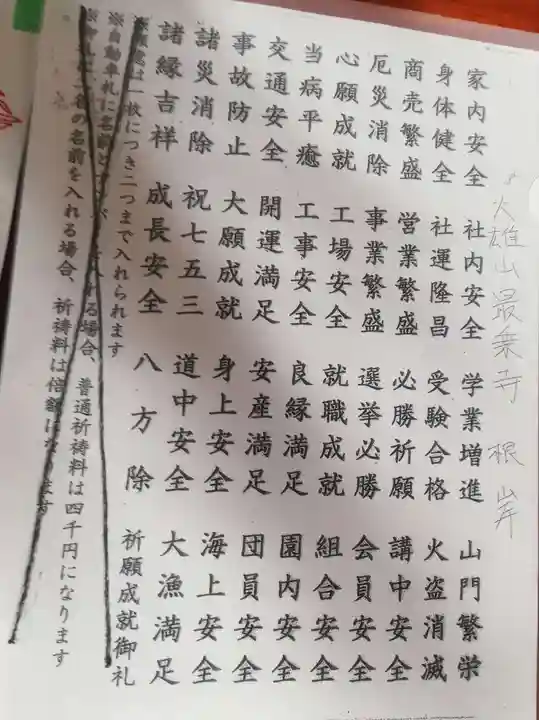 大雄山最乗寺 根岸
家内安全 社内安全 学業増進 山門繁栄
身体健全 社運隆昌 受験合格 火盗消滅
商売繁盛 営業繁盛 必勝祈願 講中安全
厄災消除 事業繁盛 選挙必勝 会員安全
心願成就 工場安全 就職成就 組合安全
当病平癒 工事安全 良縁満足 園内安全
交通安全 開運満足 安産満足 団員安全
事故防止 大願成就 身上安全 海上安全
諸災消除 祝七五三 道中安全 大漁満足
諸縁吉祥 成長安全 八方除 祈願成就御礼
※願意は一枚につき二つまで入れられます
※自動車札に名前とナンバーを入れる場合、普通祈祷料は四千円になります
の名前を入れる場合、祈祷料は倍額になります